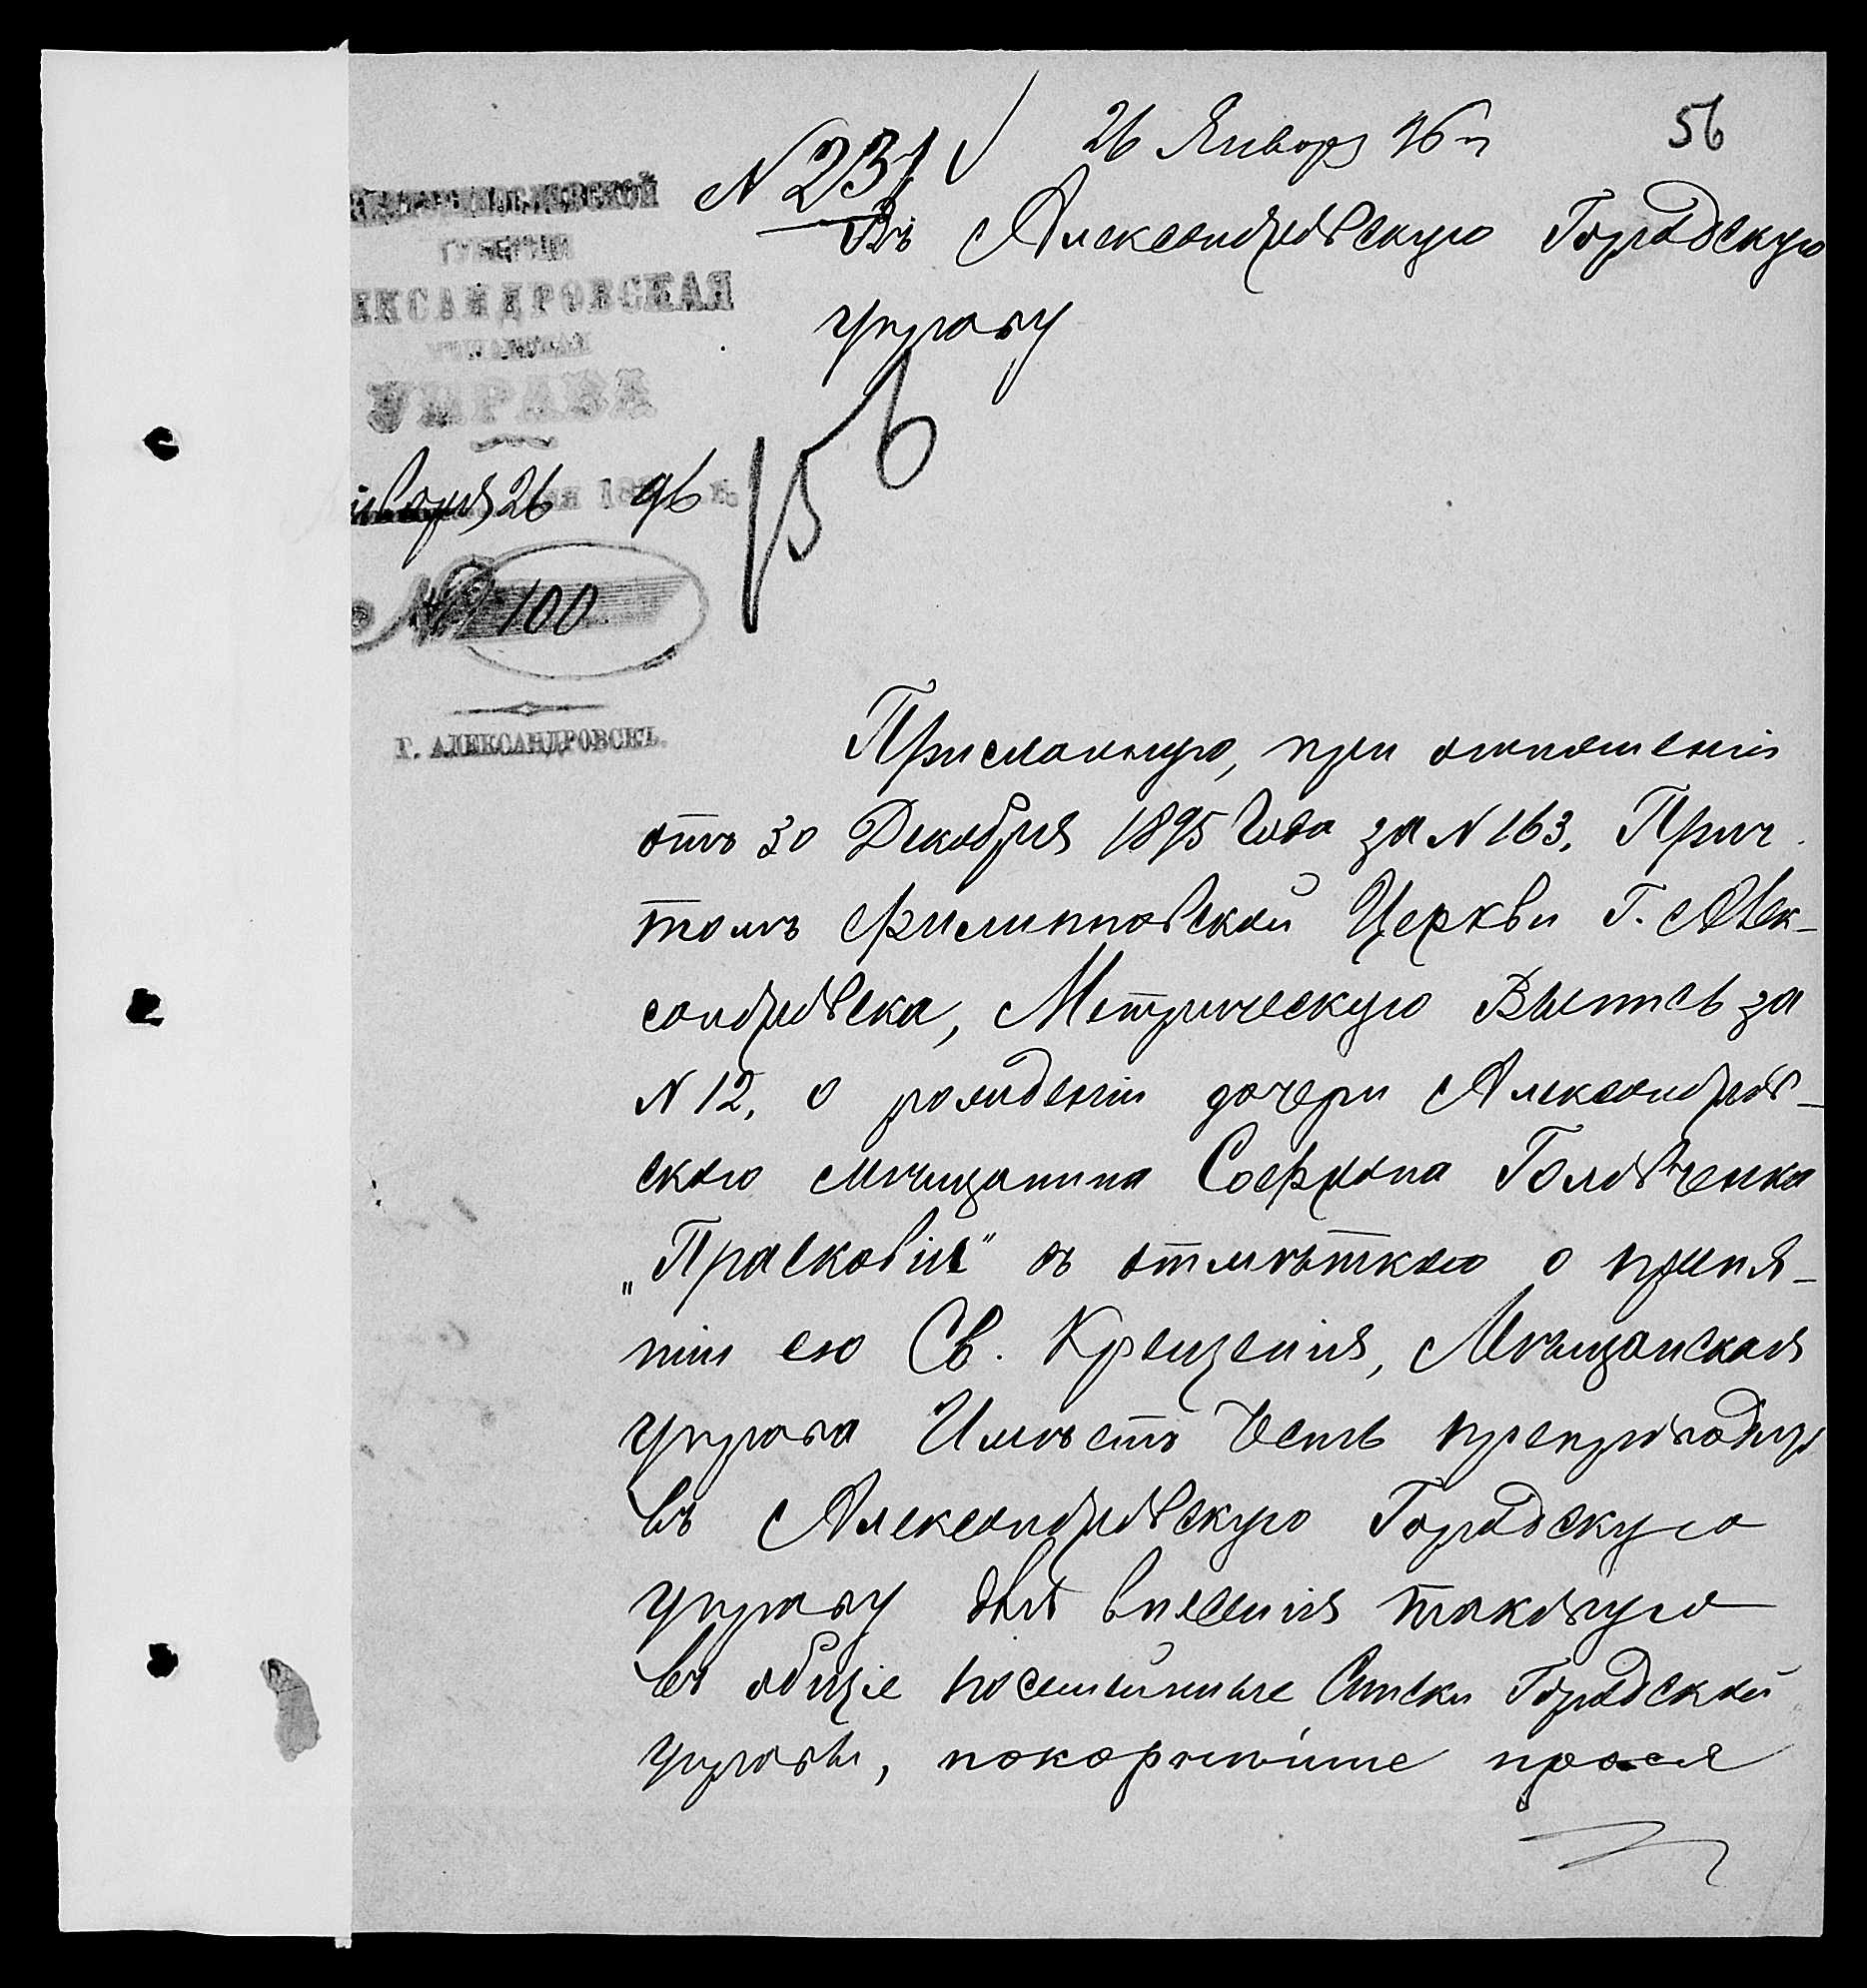 56
N 231 26 Января 96 г
Въ Александровскую Городскую
управу
156
ЕКАТЕРИНОСЛАВСКОЙ
ГУБЕРНІИ
ЕКСАНДРОВСКАЯ
МѢЩАНСКАЯ
УПРАВА
нваря 26 96 г.
№ 100
Г. АЛЕКСАНДРОВСКЪ.
Присланную, при отношеніи
отъ 30 Декабря 1895 Года за N 163. Прич
томъ Филипповской Церкви Г. Алек-
сандровска, Метрическую Выпись за
N 12, о рожденіи дочери Александров-
скаго мѣщанина Софрона Головченка
„Прасковіи" съ отмѣткою о приня-
тіи ею Св. Крещенія, Мѣщанская
управа Имѣетъ Честь препроводить
въ Александровскую Городскую
управу для внесенія таковую
въ общіе посемейные Списки Городской
управы, покорнѣйше прося